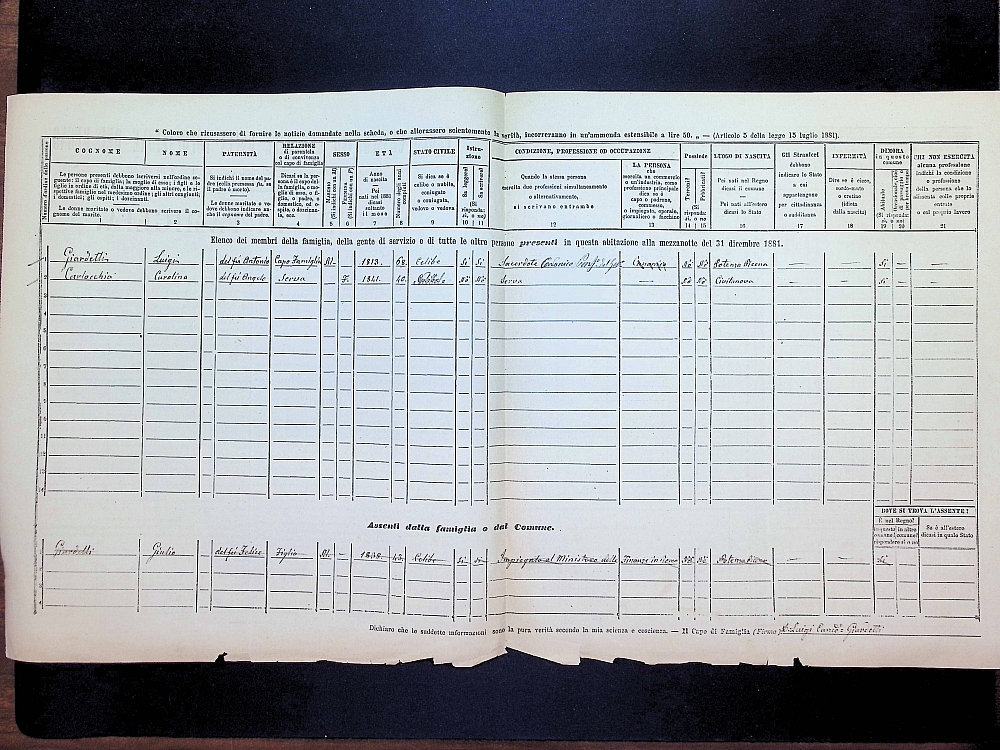 " Coloro che ricusassero di fornire le notizie domandate nella scheda, o che alterassero scientemente la verità, incorreranno in un'ammenda estensibile a lire 50. „ — (Articolo 5 della legge 15 luglio 1881).
Numero d'ordine delle persone
COGNOME
NOME
PATERNITÀ
RELAZIONE di parentela o di convivenza col capo di famiglia
SESSO
ETÀ
STATO CIVILE
Istruzione
CONDIZIONE, PROFESSIONE OD OCCUPAZIONE
Possiede
LUOGO DI NASCITA
Gli Stranieri debbono indicare lo Stato a cui appartengono per cittadinanza o sudditanza
INFERMITÀ
DIMORA in questo comune
CHI NON ESERCITA alcuna professione indichi la condizione o professione della persona che lo alimenta colle proprie entrate o col proprio lavoro
Le persone presenti debbono iscriversi nell'ordine seguente: il capo di famiglia; la moglie di esso; i figli o le figlie in ordine di età, dalla maggiore alla minore, e le rispettive famiglie nel medesimo ordine; gli altri congiunti; i domestici; gli ospiti; i dozzinanti.
Le donne maritate o vedove debbono scrivere il cognome del marito.
Si indichi il nome del padre
Le donne maritate o vedove debbono indicare anche il cognome del padre.
Dicasi se la persona è il capo della famiglia, o moglie di esso, o figlio, o padre, o domestico, od ospite, o dozzinante, ecc.
Maschi
Femmine
Anno di nascita
Pei nati nel 1881 soltanto il mese
Numero degli anni compiuti
Si dica se è celibe o nubile, coniugato o coniugata, vedovo o vedova
Sa leggere?
Sa scrivere?
(Si risponda: sì, o no)
Quando la stessa persona esercita due professioni simultaneamente o alternativamente, si scrivano entrambe
LA PERSONA che esercita un commercio o un'industria, come professione principale dica se è capo o padrone, commesso, o impiegato, operaio, giornaliero o facchino
Terreni?
Fabbricati?
(Si risponda: sì, o no)
Pei nati nel Regno dicasi il comune
Pei nati all'estero dicasi lo Stato
Dire se è cieco, sordo-muto o cretino (idiota dalla nascita)
1 2 3 4 5 6 7 8 9 10 11 12 13 14 15 16 17 18 19 20 21
Elenco dei membri della famiglia, della gente di servizio e di tutte le altre persone presenti in questa abitazione alla mezzanotte del 31 dicembre 1881.
1 Giardetti Luigi del fu Antonio Capo Famiglia M. — 1813. 68. Celibe Sì Sì Sacerdote Canonico Canonico No No Potenza Picena — — Sì — —
2 Carlocchia Carolina del fu Angelo Serva — F. 1841. 40. No No Serva — No No Civitanova — — Sì — —
Assenti dalla famiglia o dal Comune.
DOVE SI TROVA L'ASSENTE?
È nel Regno?
in questo comune
in altro comune
Se è all'estero dicasi in quale Stato
Giardetti Giulio del fu Felice M. — 1838. 43. Celibe Sì Sì Impiegato al Ministero delle Finanze No No Potenza Picena — Sì
Dichiaro che le suddette informazioni sono la pura verità secondo la mia scienza e coscienza. — Il Capo di Famiglia (Firma) D. Luigi Can.co Giardetti